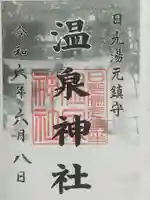 日光湯元鎮守
温泉神社
令和六年六月八日